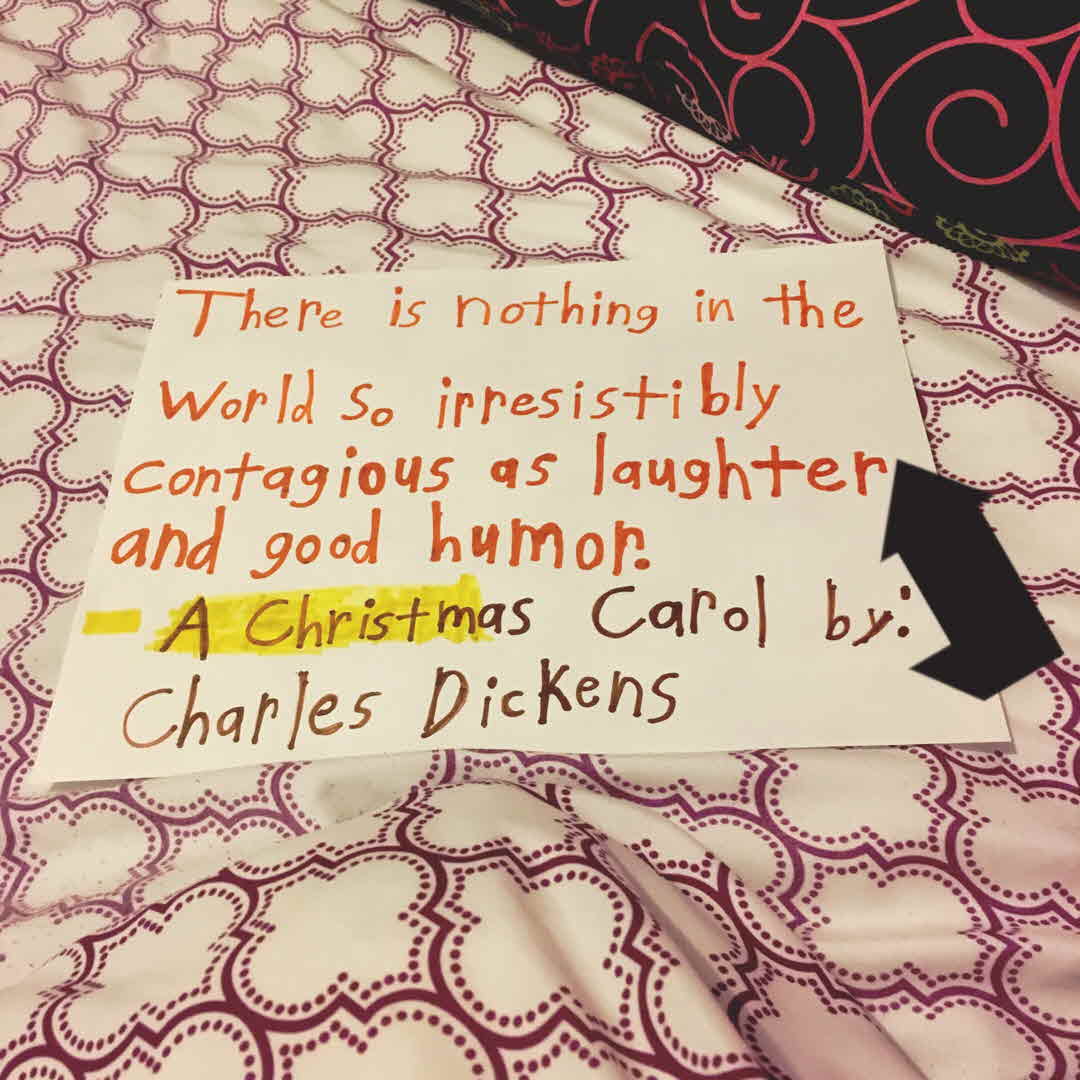 There is nothing in the
World so irresistibly
contagious as laughter
and good humor.
- A Christmas Carol by:
Charles Dickens